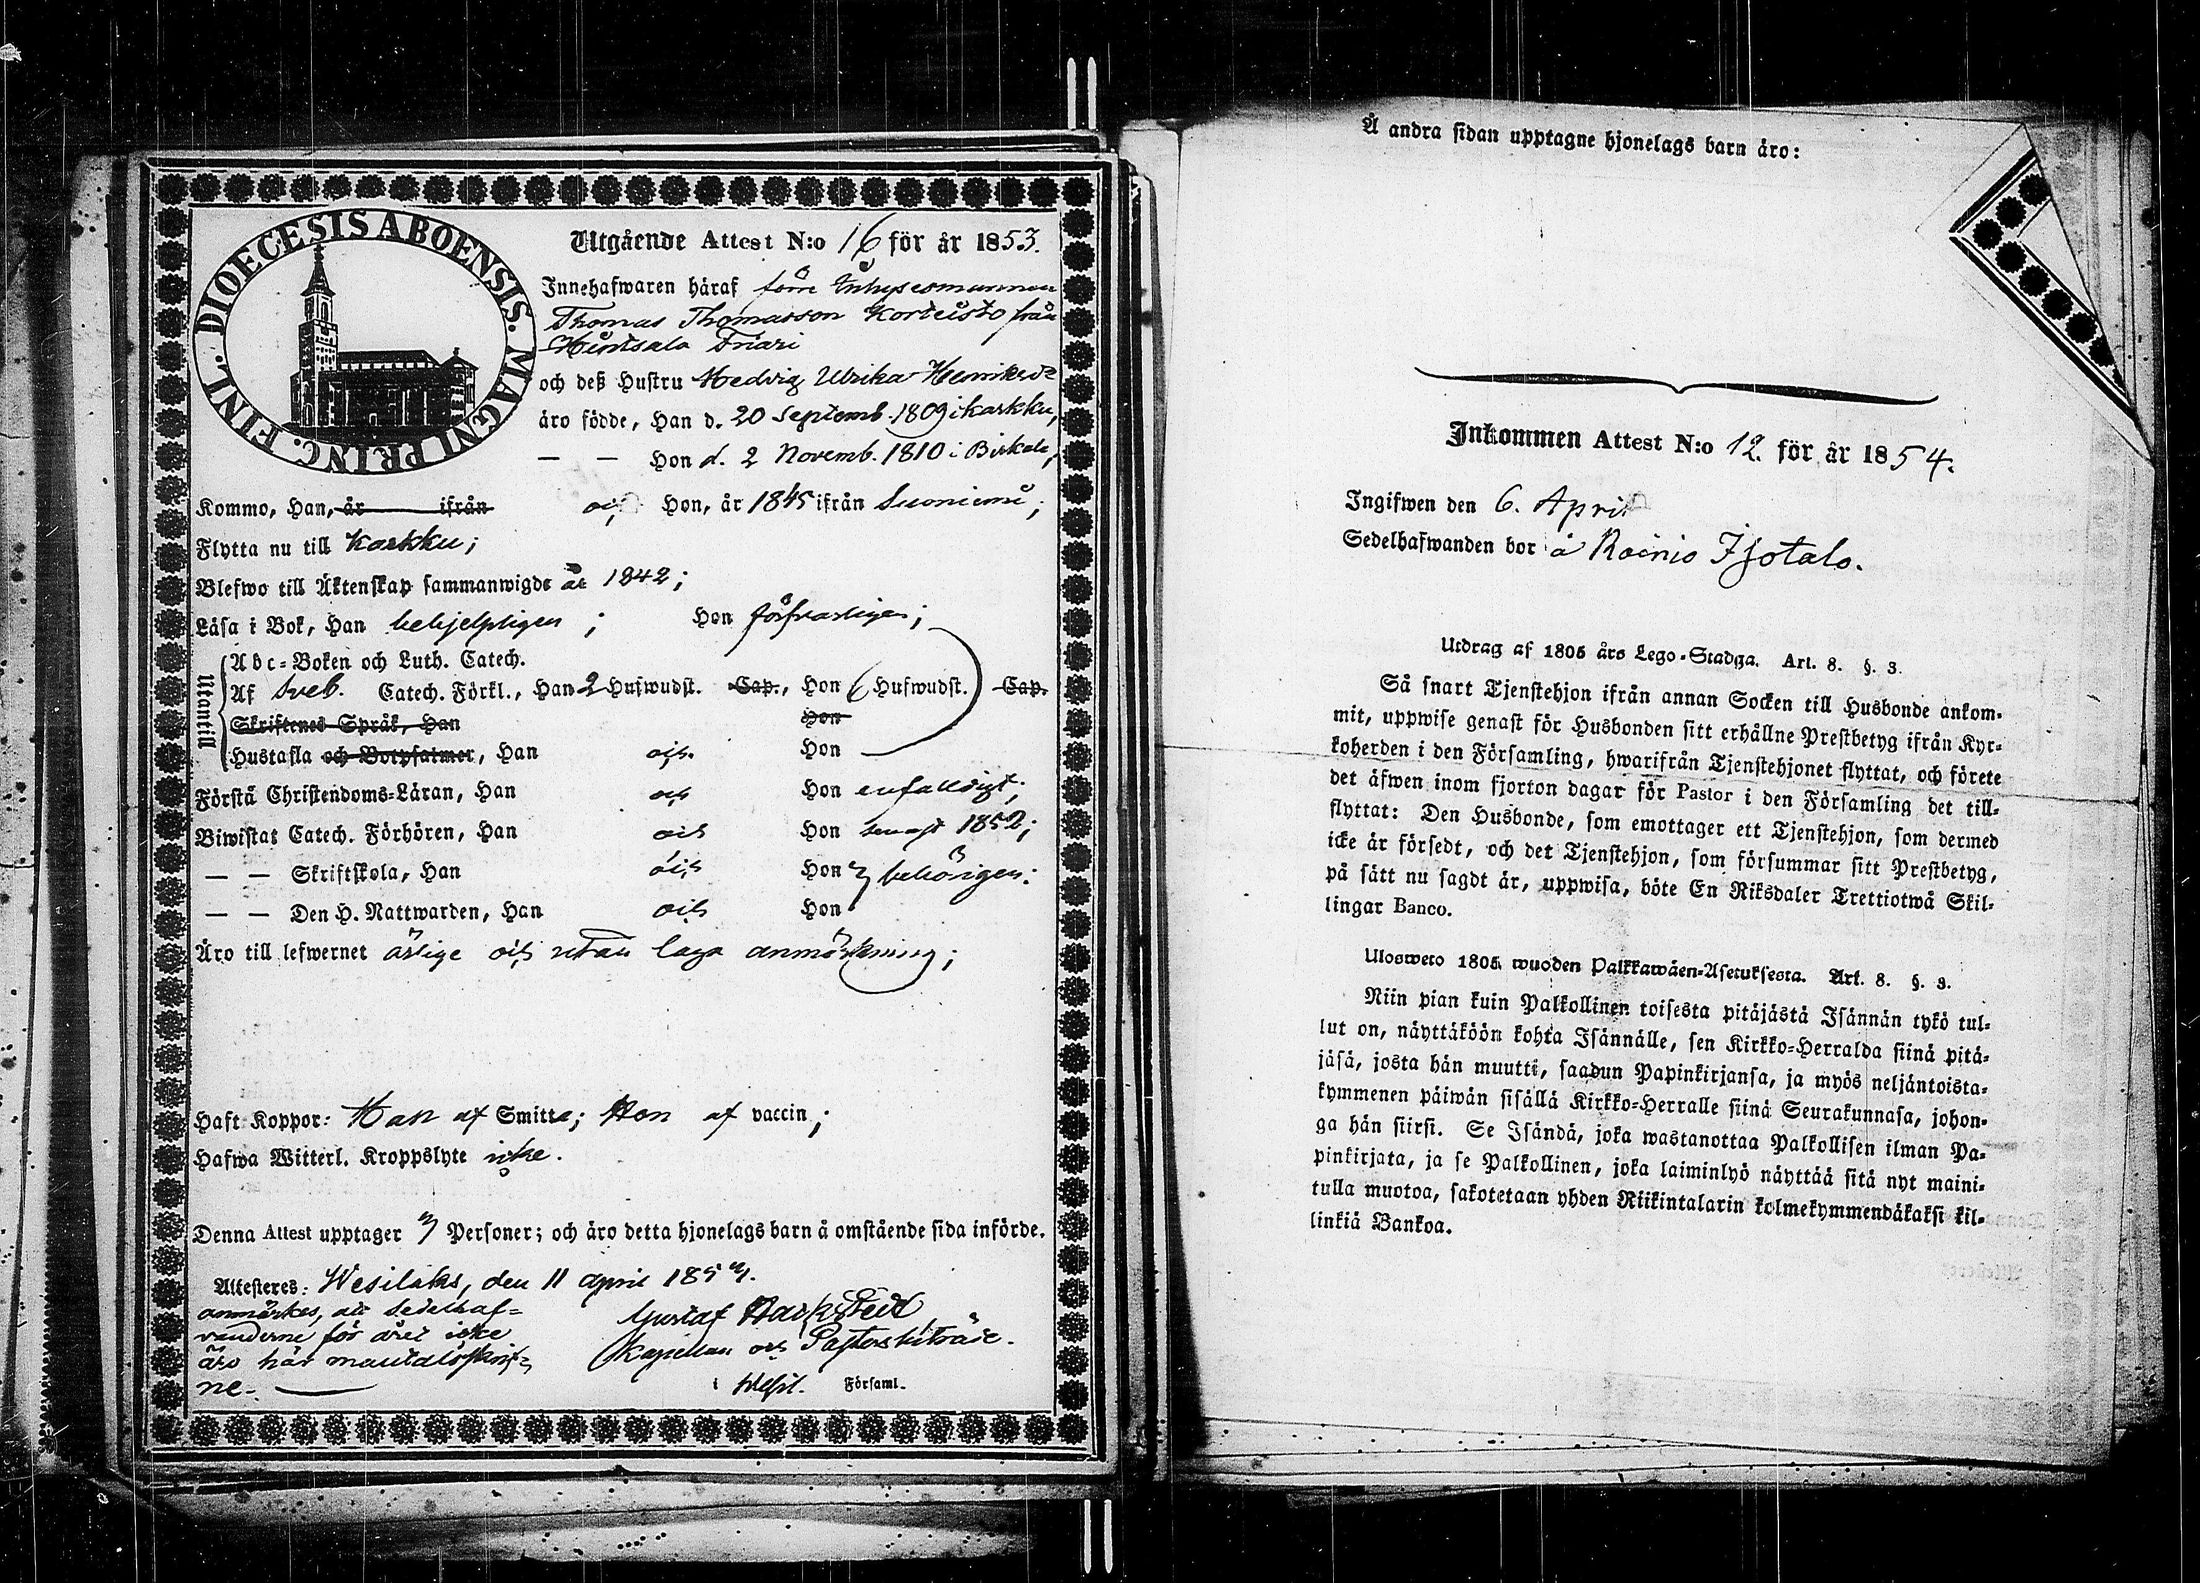 DIOECESIS ABOENSIS. MAGNI PRINC. FINL.
Utgående Attest N:o 16 för år 1853.
Innehafwaren häraf förre Inhysesmannen
Thomas Thomasson Korteisto från
och deß Hustru Hedvig Ulrika Henriksdr
äro födde, Han d. 20 Septemb. 1809 i Karkku,
— — Hon d. 2 Novemb. 1810 i Birkala,
Kommo, Han, är ifrån och Hon, år 1845 ifrån Suoniemi;
Flytta nu till Karkku;
Blefwo till Äktenskap sammanwigde år 1842;
Läsa i Bok, Han behjelpligen; Hon försvarligen;
Utantill
Abc-Boken och Luth. Catech.
Af Sveb. Catech. Förkl., Han 2 Hufwudst. Cap., Hon 6 Hufwudst. Cap.
Skriftenes Språk, Han Hon
Hustafla och Botpsalmer, Han och Hon
Förstå Christendoms-Läran, Han och Hon enfaldigt;
Biwistat Catech. Förhören, Han och Hon senast 1852;
— — Skriftskola, Han och Hon behörigen:
— — Den H. Nattwarden, Han och Hon
Äro till lefwernet ärlige och utan laga anmärkning;
Haft Koppor: Han af Smitta; Hon af vaccin;
Hafwa Witterl. Kroppslyte icke.
Denna Attest upptager Personer; och äro detta hjonelags barn å omstående sida införde.
Attesteres: Wesilaks, den 11 April 1853.
anmärkes, att Sedelhaf-
vanderne för året icke
äro här mantalsskrif-
ne.
Gustaf
Kapellan och Pastorsbiträde.
i Wesil. Församl.
Å andra sidan upptagne hjonelags barn äro:
Inkommen Attest N:o 12. för år 1854.
Ingifwen den 6. April
Sedelhafwanden bor å Rainio Isotalo.
Utdrag af 1805 års Lego-Stadga. Art. 8. §. 3.
Så snart Tjenstehjon ifrån annan Socken till Husbonde ankom-
mit, uppwise genast för Husbonden sitt erhållne Prestbetyg ifrån Kyr-
koherden i den Församling, hwarifrån Tjenstehjonet flyttat, och förete
det äfwen inom fjorton dagar för Pastor i den Församling det till-
flyttat: Den Husbonde, som emottager ett Tjenstehjon, som dermed
icke är försedt, och det Tjenstehjon, som försummar sitt Prestbetyg,
på sätt nu sagdt är, uppwisa, böte En Riksdaler Trettiotwå Skil-
lingar Banco.
Uloswето 1805 wuoden Palkkawäen-Asetuksesta. Art. 8. §. 3.
Niin pian kuin Palkollinen toisesta pitäjästä Isännän tykö tul-
lut on, näyttäköön kohta Isännälle, sen Kirkko-Herralda siinä pitä-
jäsä, josta hän muutti, saadun Papinkirjansa, ja myös neljäntoista-
kymmenen päiwän sisällä Kirkko-Herralle siinä Seurakunnasa, johon-
ga hän siirsi. Se Isändä, joka wastanottaa Palkollisen ilman Pa-
pinkirjata, ja se Palkollinen, joka laiminlyö näyttää sitä nyt maini-
tulla muotoa, sakotetaan yhden Riikintalarin kolmekymmendäkaksi kil-
linkiä Bankoa.